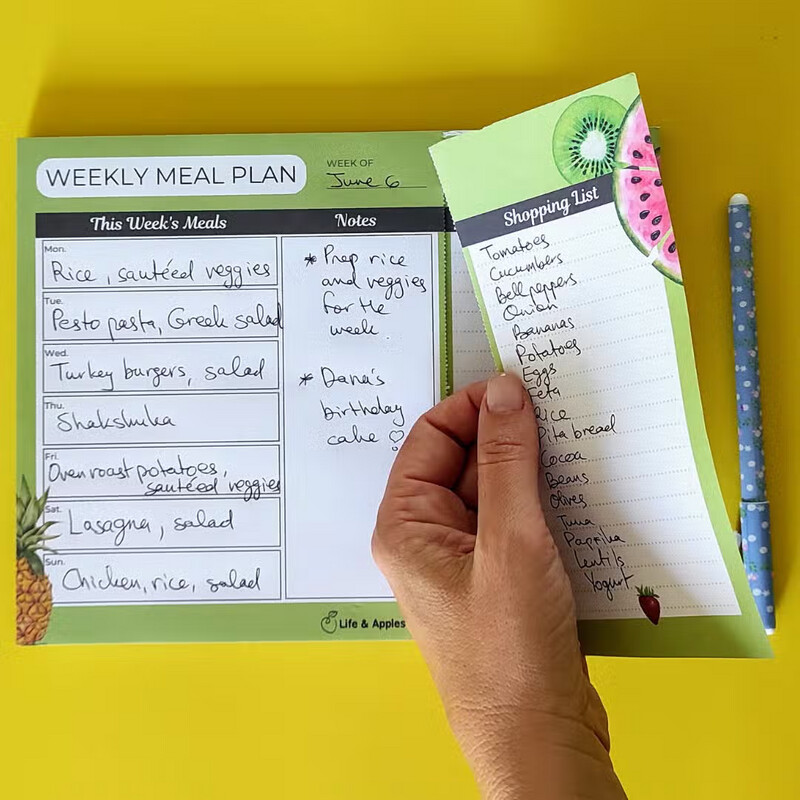 WEEKLY MEAL PLAN
WEEK OF
June 6
This Week's Meals
Mon.
Rice, sautéed veggies
Tue.
Pesto pasta, Greek salad
Wed.
Turkey burgers, salad
Thu.
Shakshuka
Fri.
Oven roast potatoes,
sautéed veggies
Sat.
Lasagna, salad
Sun.
Chicken, rice, salad
Notes
* Prep rice
and veggies
for the
week
* Dana's
birthday
cake ♡!
Life & Apples
Shopping List
Tomatoes
Cucumbers
Bell peppers
Onion
Bananas
Potatoes
Eggs
Feta
Rice
Pita bread
Cocoa
Beans
Olives
Tuna
Paprika
Lentils
Yogurt